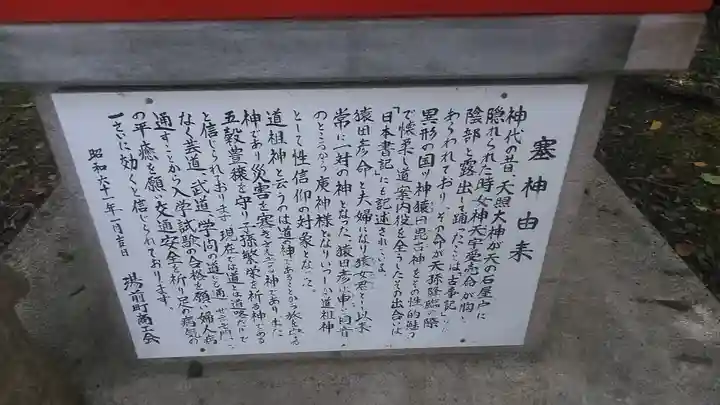 塞神由来
神代の昔、天照大神が天の石屋戸に
隠れられた時、女神天宇受売命が胸と
陰部を露出し踊ったことは「古事記」に
あらわれており、その命が天孫降臨の際
異形の国ッ神猿田毘古神をその性的魅力
で懐柔し道案内役を全うしたその出合いは
「日本書記」にも記述されている。
猿田彦命と夫婦になり猿女君として以来
常に一対の神となった。猿田彦は申と同音
のところから庚神様となりいつしか道祖神
として性信仰の対象となった。
道祖神と云うのは道の神であることから旅を守る
神であり災害を塞ぎさえぎる神でありまた
五穀豊穣を守り子孫繁栄を祈る神である
と信じられております。現在では道は道路だけで
なく芸道、武道、学問の道と通ず
通すことから入学試験の合格を願い婦人病
の平癒を願い交通安全を祈り足の病気の
に効くと信じられております。
昭和六十一年一月吉日
湯前町商工会